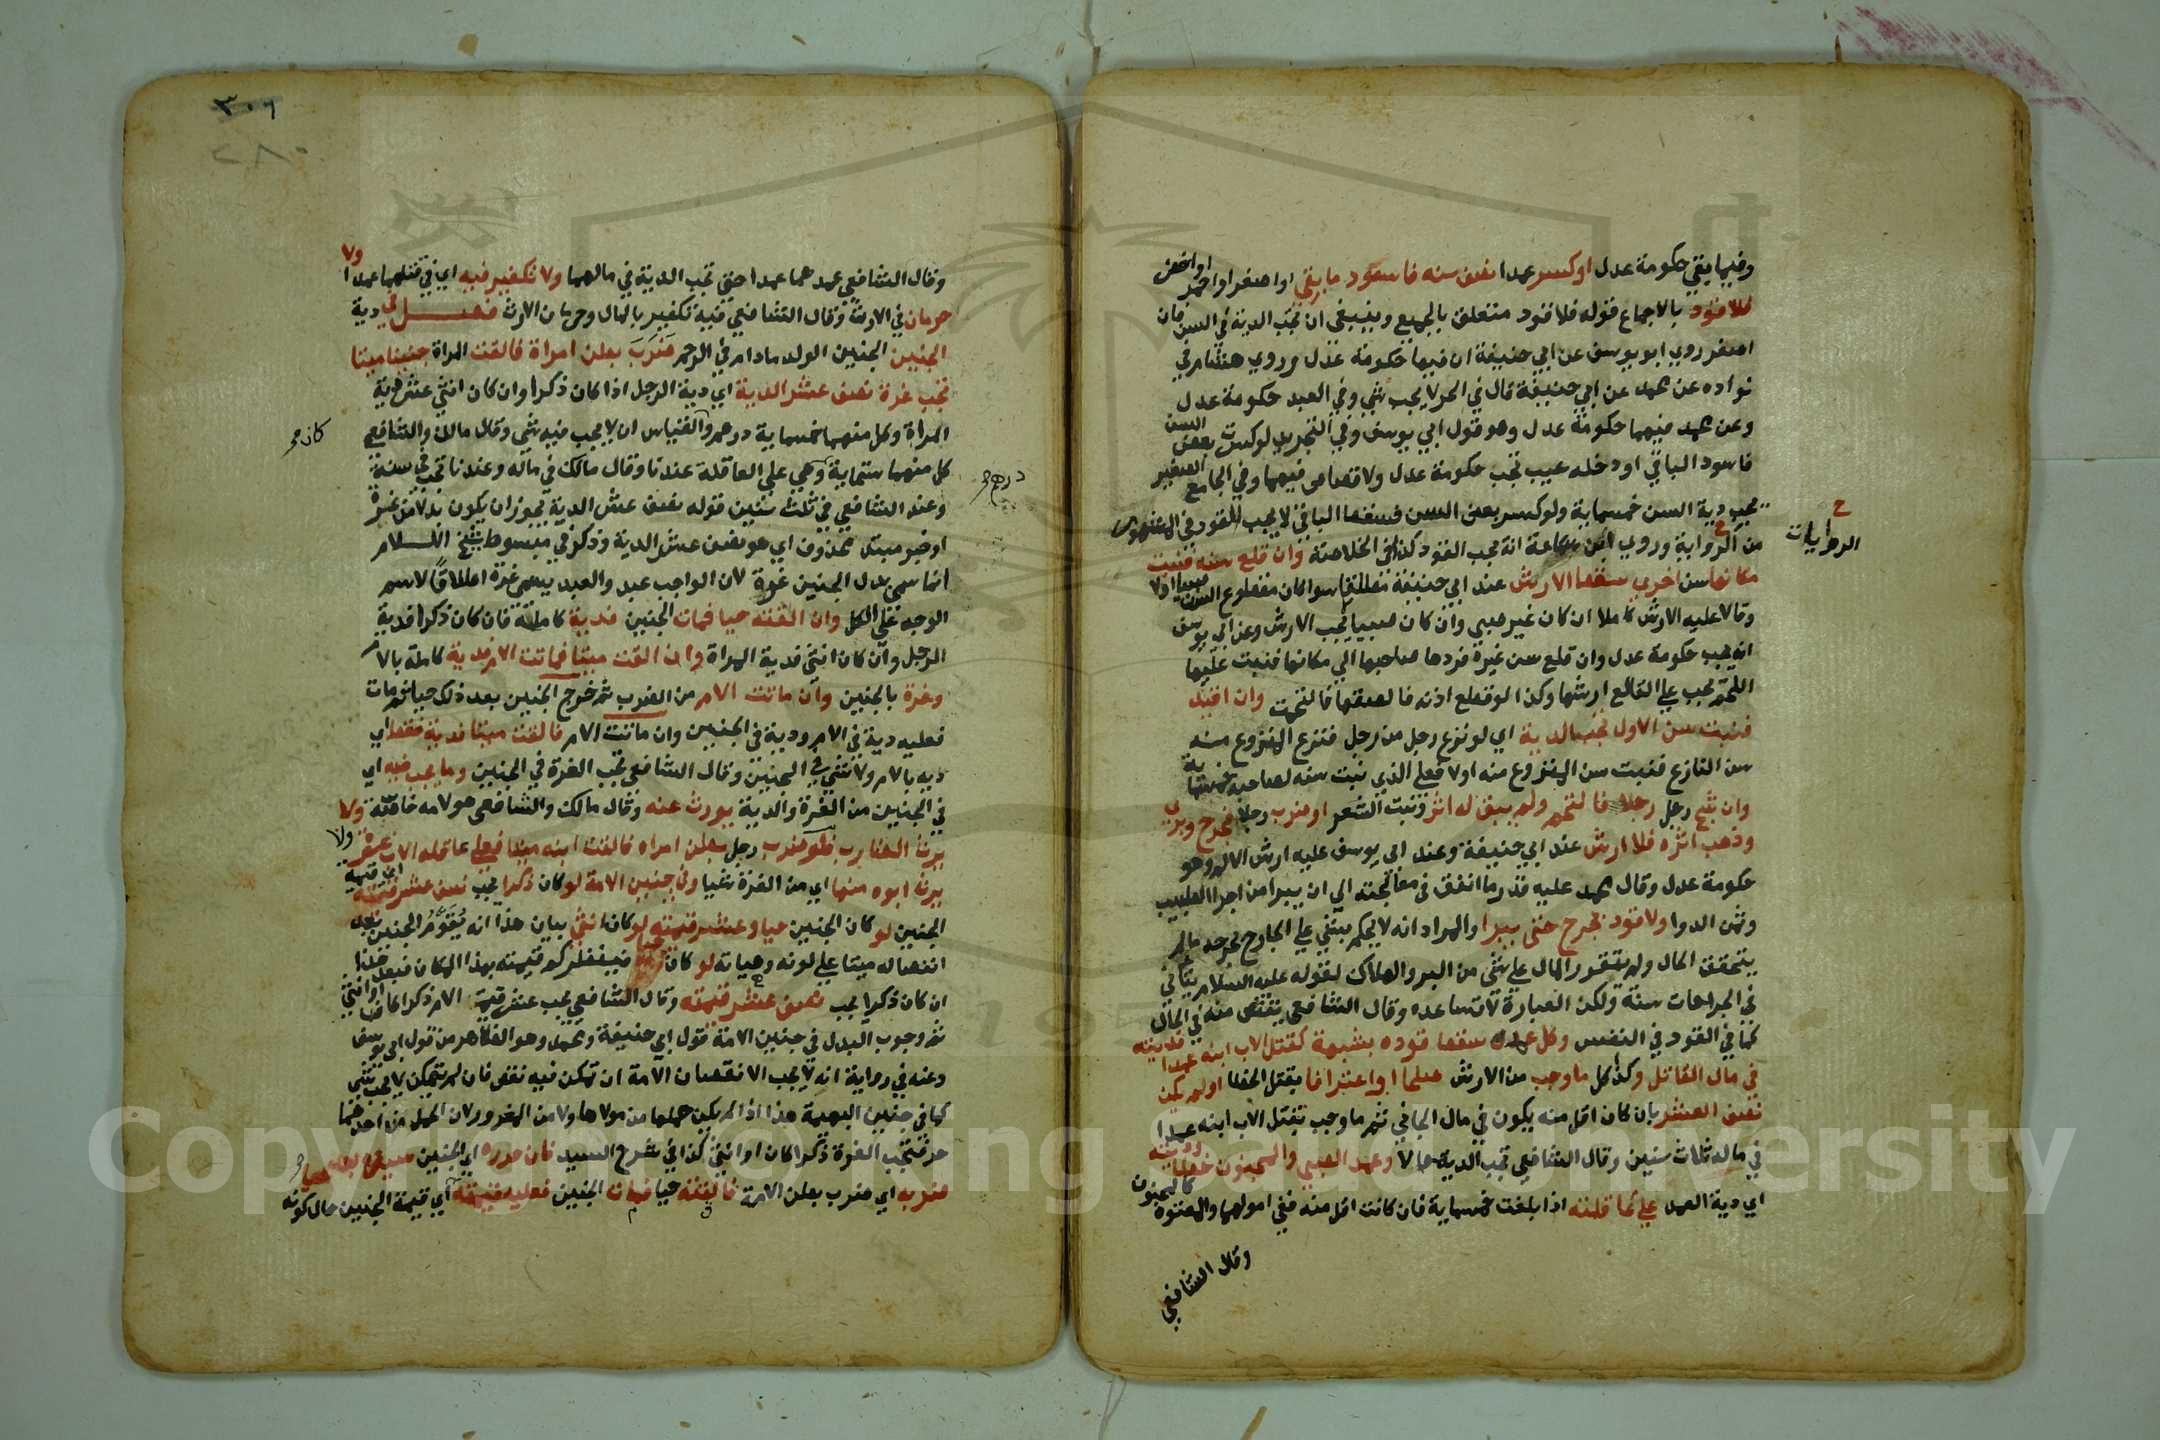 وفيما بقي حكومة عدل او كسر عمدا نصف سنه فاسود ما بقي او اصفر او احمر او اخضر
فلا قود بالاجماع قوله فلا قود متعلق بالجميع وينبغي ان تجب الدية في السن فان
اصفر روي ابو يوسف عن ابي حنيفة ان فيها حكومة عدل وروي هشام في
نوادره عن محمد عن ابي حنيفة قال في الحر لا يجب شي وفي العبد حكومة عدل
وعن محمد فيهما حكومة عدل وهو قول ابي يوسف وفي التجريد لو كسرت بعض السن
فاسود الباقي او دخله عيب تجب حكومة عدل ولا قصاص فيهما وفي الجامع الصغير
يجب دية السن خمسماية ولو كسر بعض السن فسقط الباقي لا يجب القود في المشهور
من الرواية وروي ابن سماعة انه يجب القود كذا في الخلاصة وان قلع سنه فنبت
مكانها سن اخري سقط الارش عند ابي حنيفة مطلقا سوا كان مقلوع السن صبيا او لا
وقالا عليه الارش كاملا ان كان غير صبي وان كان صبيا يجب الارش وعن ابي يوسف
انه يجب حكومة عدل وان قلع سن غيره فردها صاحبها الي مكانها فنبت عليها
اللحم يجب علي القالع ارشها وكذا لو قطع اذنه فالصقها فالتحمت وان اقيد
فنبت سن الاول تجب الدية اي لو نزع رجل سن رجل فنزع المنزوع منه
سن النازع فنبت سن المنزوع منه اولا فعلي الذي نبت سنه لصاحبه خمسماية
وان شج رجل رجلا فالتحم ولم يبق له اثر ونبت الشعر او ضرب رجلا فجرح وبري
وذهب اثره فلا ارش عند ابي حنيفة وعند ابي يوسف عليه ارش الالم وهو
حكومة عدل وقال محمد عليه قدر ما انفق في معالجته الي ان يبرا من اجرا الطبيب
وثمن الدوا ولا قود بجرح حتي يبرا والمراد انه لا يحكم بشي علي الجارح بجرحه مالم
يتحقق الحال ولم يتقرر المال علي شي من البر والهلاك لقوله عليه السلام يتاني
في الجراحات سنة ولكن العبارة لا تساعده وقال الشافعي يقتص منه في الحال
كما في القود في النفس وكل عمد سقط قوده بشبهة كقتل الاب ابنه عمدا فديته
في مال القاتل وكذا كل ما وجب من الارش صلحا او اعترافا بقتل الخطا او لم يكن
نصف العشر بان كان اقل منه يكون في مال الجاني ثم ما وجب بقتل الاب ابنه عمدا
في ماله ثلاث سنين وقال الشافعي تجب الدية حالا وعمد الصبي والمجنون خطا وديته
اي دية العمد علي عاقلته اذا بلغت خمسماية فان كانت اقل منه ففي اموالهما والمعتوه كالمجنون
وقال الشافعي
ح
الروايات
٣٠٦
٢٨٠
وقال الشافعي عمدهما عمدا حتي تجب الدية في مالهما ولا تكفير فيه اي في قتلهما عمدا ولا
حرمان في الارث وقال الشافعي فيه تكفير بالمال وحرمان الارث فصل في دية
الجنين الجنين الولد مادام في الرحم ضرب بطن امراة فالقت المراة جنينا ميتا
تجب غرة نصف عشر الدية اي دية الرجل اذا كان ذكرا وان كان انثي عشر دية
المراة وكل منهما خمسماية درهم والقياس ان لا يجب فيه شي وقال مالك والشافعي
كل منهما ستماية وهي علي العاقلة عندنا وقال مالك في ماله وعندنا تجب في سنة
وعند الشافعي في ثلث سنين قوله نصف عشر الدية يجوز ان يكون بدلا من غرة
او خبر مبتدا محذوف اي هو نصف عشر الدية وذكر في مبسوط شيخ الاسلام
انما سمي بدل الجنين غرة لان الواجب عبد والعبد يسمي غرة اطلاقا لاسم
الوجه علي الكل وان القته حيا فمات الجنين فدية كاملة فان كان ذكرا فدية
الرجل وان كان انثي فدية المراة وان القت ميتا فماتت الام فدية كاملة بالام
وغرة بالجنين وان ماتت الام من الضرب ثم خرج الجنين بعد ذلك حيا ثم مات
فعليه دية في الام ودية في الجنين وان ماتت الام فالقت ميتا فدية فقط اي
دية بالام ولا شي في الجنين وقال الشافعي تجب الغرة في الجنين وما يجب فيه اي
في الجنين من الغرة والدية يورث عنه وقال مالك والشافعي هو لامه خاصة ولا
يرث الضارب فلو ضرب رجل بطن امراه فالقت ابنه ميتا فعلي عاقلة الاب غرة ولا
يرث ابوه منها اي من الغرة شيا وفي جنين الامة لو كان ذكرا يجب نصف عشر قيمته اي قيمة
الجنين لو كان الجنين حيا وعشر قيمته لو كان انثي بيان هذا انه يقوم الجنين بعد
انفصاله ميتا علي لونه وهياته لو كان حيا فينظر كم قيمته بهذا المكان فبعد هذا
ان كان ذكرا يجب نصف عشر قيمته وقال الشافعي يجب عشر قيمة الام ذكرا كان او انثي
ثم وجوب البدل في جنين الامة قول ابي حنيفة ومحمد وهو الظاهر من قول ابي يوسف
وعنه في رواية انه لا يجب الا نقصان الامة ان تمكن فيه نقص فان لم يتمكن لا يجب شي
كما في جنين البهيمة هذا اذا لم يكن حملها من مولاها ولا من المغرور لان الحمل من احدهما
حر فتجب الغرة ذكرا كان او انثي كذا في شرح السيد فان حرره اي الجنين سيده بعد
ضربه اي ضرب بطن الامة فالقته حيا فمات الجنين فعليه قيمته اي قيمة الجنين حال كونه
درهم